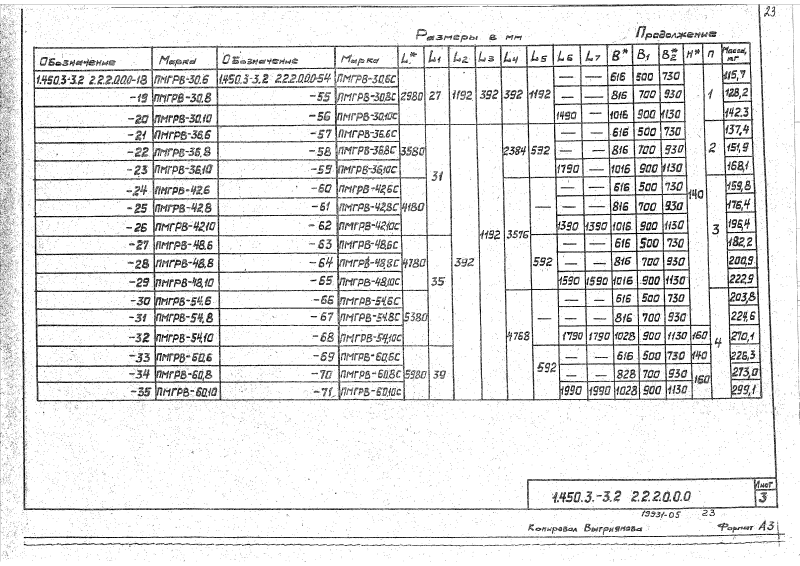 23
Размеры в мм Продолжение
Обозначение Марка Обозначение Марка L* L1 L2 L3 L4 L5 L6 L7 B* B1 B2* H* п Масса, кг
1.450.3-3.2 2.2.2.0.0.0-18 ПМГРВ-30.6 1.450.3-3.2 2.2.2.0.0.0-54 ПМГРВ-30.6С — — 616 500 730 115,7
-19 ПМГРВ-30.8 -55 ПМГРВ-30.8С 2980 27 1192 392 392 1192 — — 816 700 930 1 128,2
-20 ПМГРВ-30.10 -56 ПМГРВ-30.10С 1490 — 1016 900 1130 142.3
-21 ПМГРВ-36.6 -57 ПМГРВ-36.6С — — 616 500 730 137,4
-22 ПМГРВ-36.8 -58 ПМГРВ-36.8С 3580 2384 592 — — 816 700 930 2 151,9
-23 ПМГРВ-36.10 -59 ПМГРВ-36.10С 31 1790 — 1016 900 1130 168,1
-24 ПМГРВ-42.6 -60 ПМГРВ-42.6С — — 616 500 730 140 159,8
-25 ПМГРВ-42.8 -61 ПМГРВ-42.8С 4180 — — — 816 700 930 176,4
-26 ПМГРВ-42.10 -62 ПМГРВ-42.10С 1192 3576 1390 1390 1016 900 1130 3 196,4
-27 ПМГРВ-48.6 -63 ПМГРВ-48.6С — — 616 500 730 182,2
-28 ПМГРВ-48.8 -64 ПМГРВ-48.8С 4780 392 592 — — 816 700 930 200,9
-29 ПМГРВ-48.10 -65 ПМГРВ-48.10С 35 1590 1590 1016 900 1130 222,9
-30 ПМГРВ-54.6 -66 ПМГРВ-54.6С — — 616 500 730 203,8
-31 ПМГРВ-54.8 -67 ПМГРВ-54.8С 5380 — — — 816 700 930 224,6
-32 ПМГРВ-54.10 -68 ПМГРВ-54.10С 4768 1790 1790 1028 900 1130 160 4 270,1
-33 ПМГРВ-60.6 -69 ПМГРВ-60.6С — — 616 500 730 140 226,3
-34 ПМГРВ-60.8 -70 ПМГРВ-60.8С 5980 39 592 — — 828 700 930 160 273,0
-35 ПМГРВ-60.10 -71 ПМГРВ-60.10С 1990 1990 1028 900 1130 299,1
1.450.3.-3.2 2.2.2.0.0.0 Лист 3
19931-05 23
Копировал Выгриянова Формат А3